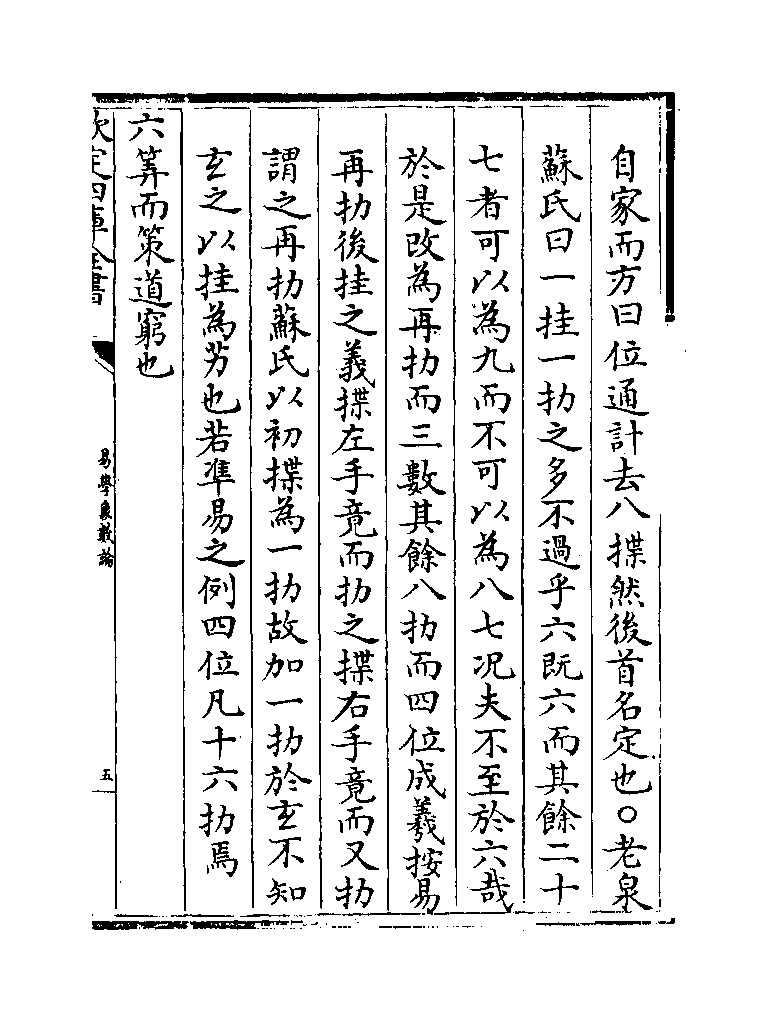 自家而方曰位通計去八揲然後首名定也○老泉
蘇氏曰一挂一扐之多不過乎六既六而其餘二十
七者可以為九而不可以為八七况夫不至於六哉
於是改為再扐而三數其餘八扐而四位成義按易
再扐後挂之義揲左手竟而扐之揲右手竟而又扐
謂之再扐蘇氏以初揲為一扐故加一扐於玄不知
玄之以挂為芳也若凖易之例四位凡十六扐焉
六筭而策道窮也
欽定四庫全書
易學象數論
五